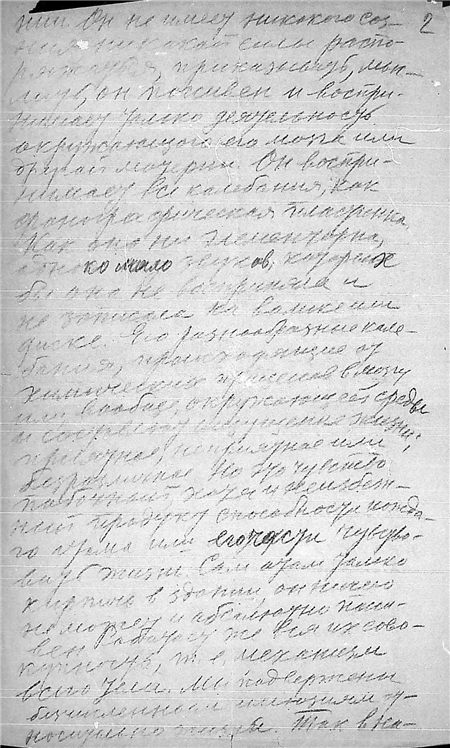 нии. Он не имеет никакого соз- 2
ния никакой силы распо-
ряжаться, приказывать, мыс-
лить, он пассивен и воспри-
нимает только деятельность
окружающего его мозга или
другой материи. Он воспри-
нимает все колебания, как
фонографическая пластинка.
Как она ни элементарна,
однако мало звуков, которых
бы она не восприняла и
не записала на валике или
диске. Его разнообразные коле-
бания, происходящие от
химических процессов в мозгу
или вообще, окружающей среды
и составляют ощущение жизни,
приятное неприятное или
безразличное. Но это чувство
побочный, хотя и неизбеж-
ный продукт способности каждо-
го атома или его части чувство-
вать жизнь. Сам атом только
кирпич в здании, он ничего
не может и абсолютно пасси-
вен. Работает же вся их сово-
купность, т. е. механизм
всего тела. Мы подвержены
бесчисленным иллюзиям от-
носительно жизни. Так в на-